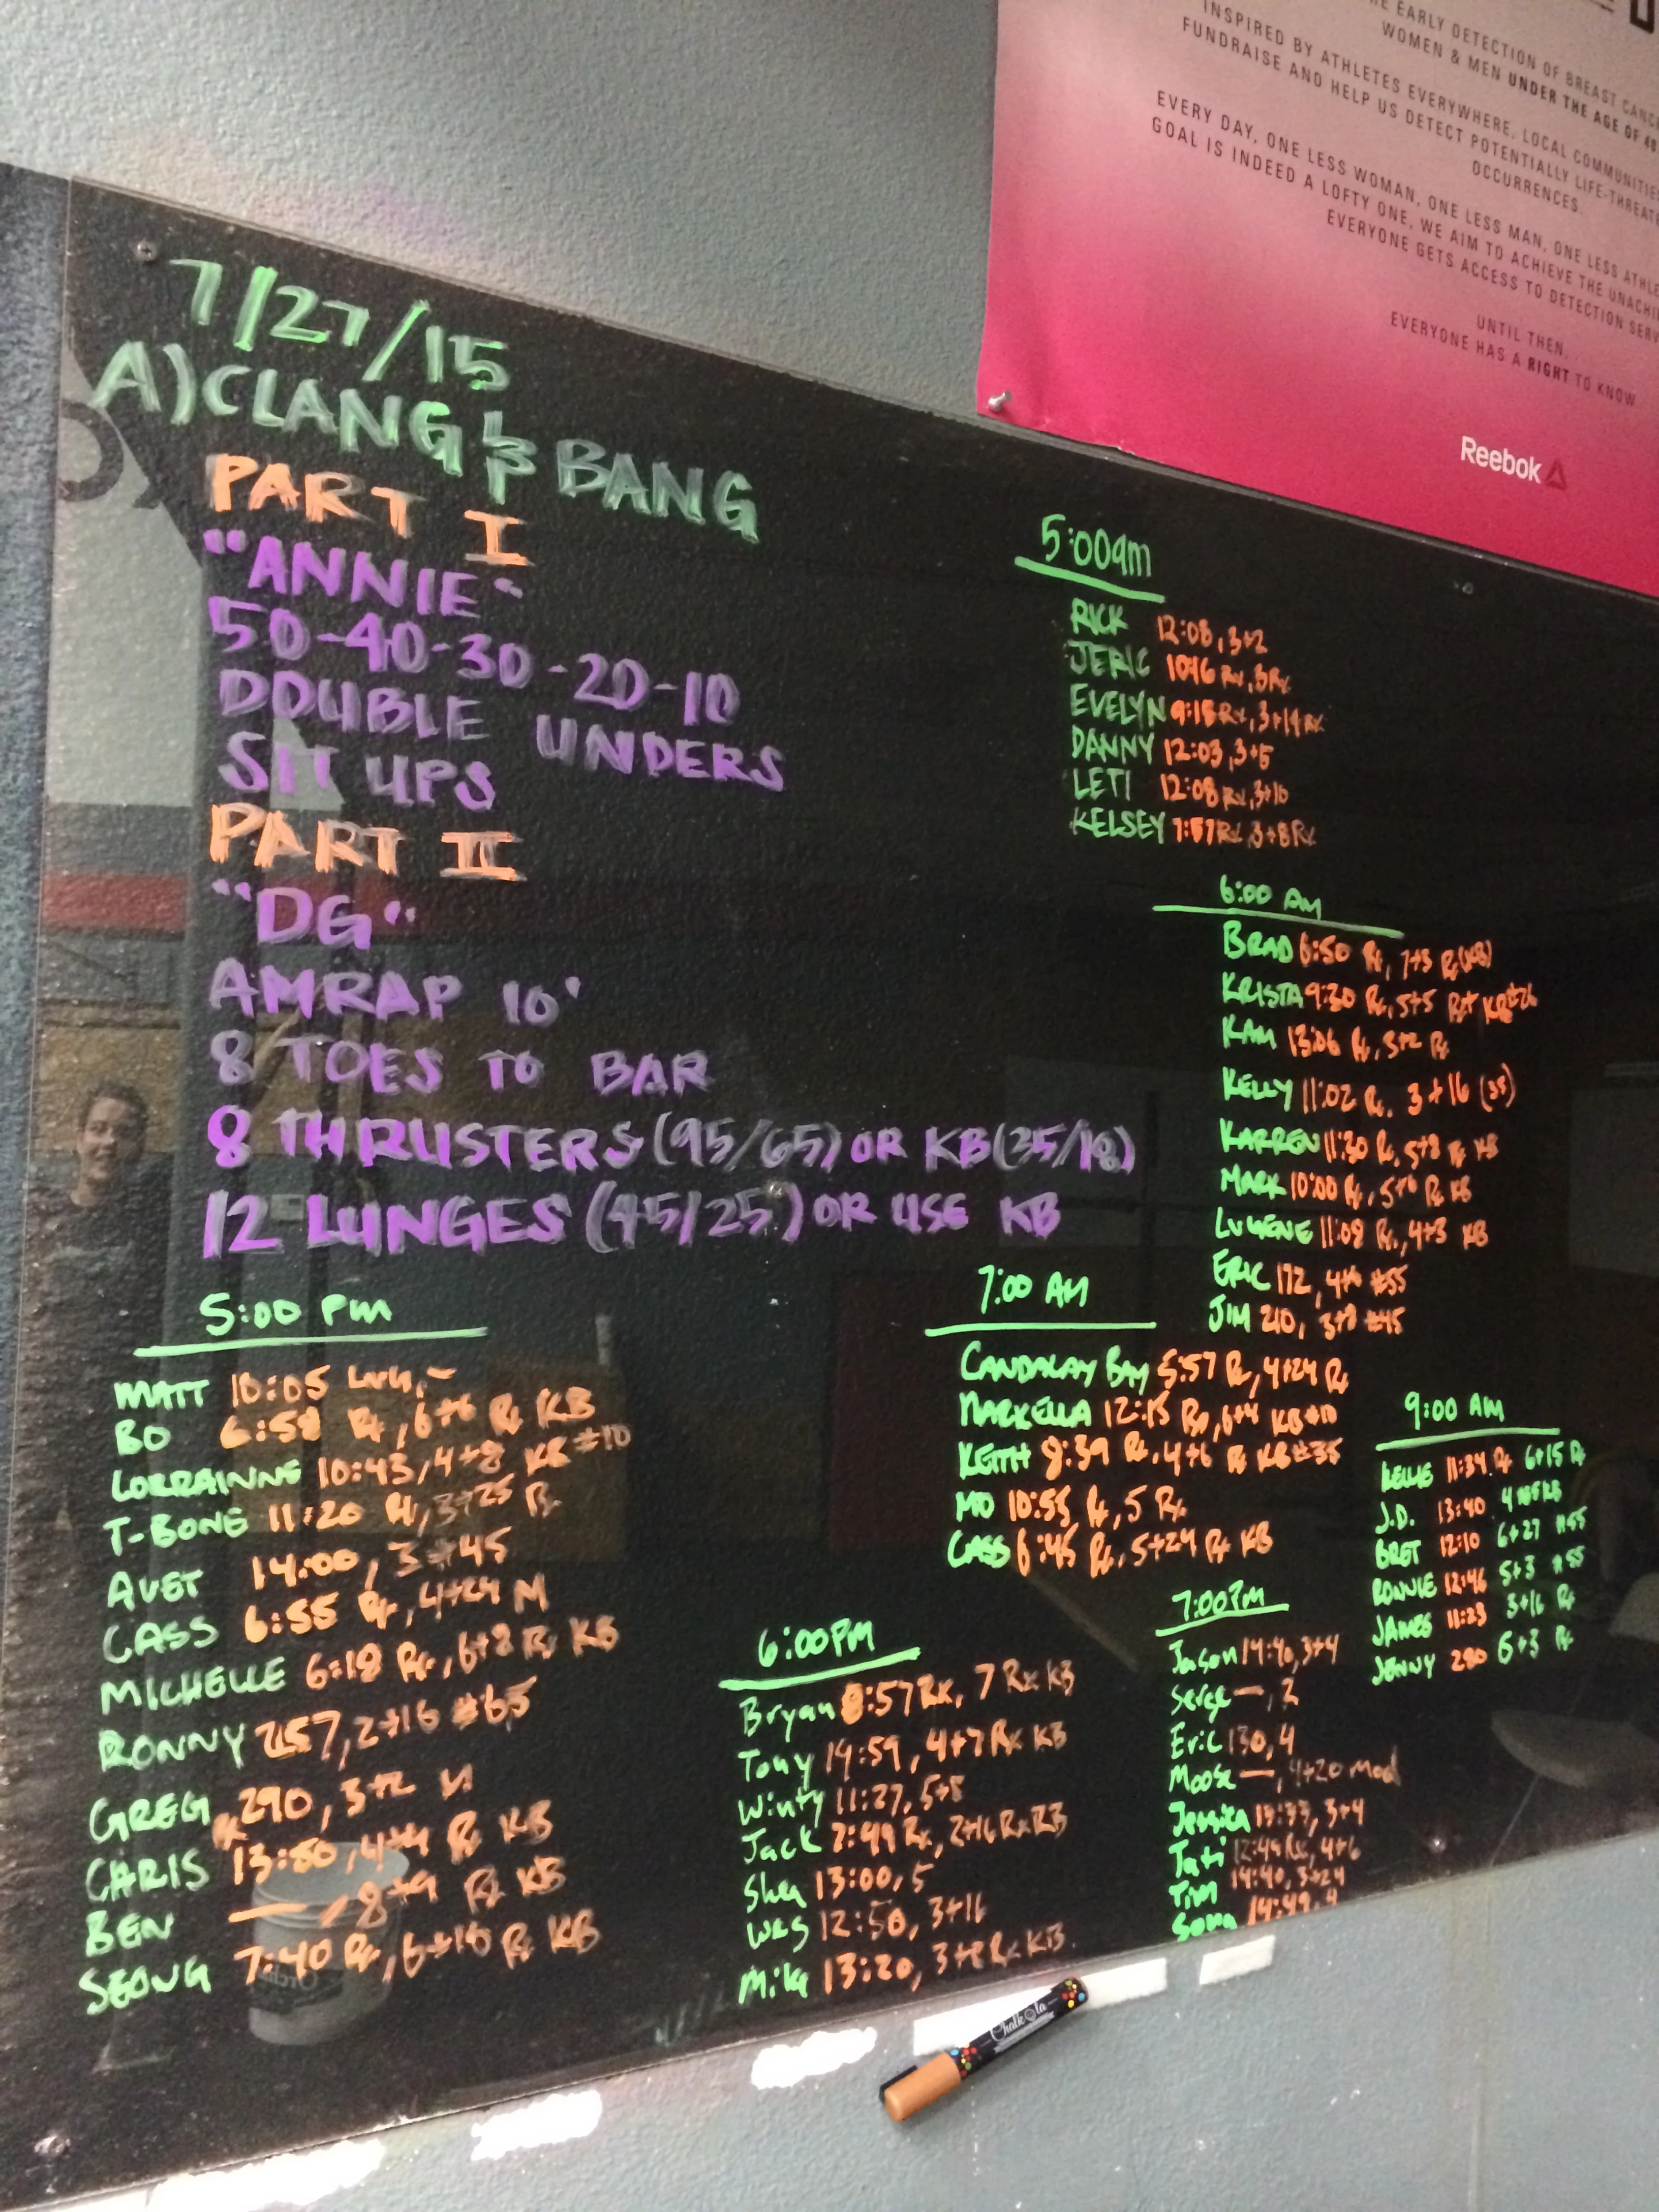 THE EARLY DETECTION OF BREAST CANCE
WOMEN & MEN UNDER THE AGE OF 40
INSPIRED BY ATHLETES EVERYWHERE, LOCAL COMMUNITIES
FUNDRAISE AND HELP US DETECT POTENTIALLY LIFE-THREATE
OCCURRENCES.
EVERY DAY, ONE LESS WOMAN, ONE LESS MAN, ONE LESS ATHLE
GOAL IS INDEED A LOFTY ONE, WE AIM TO ACHIEVE THE UNACHI
EVERYONE GETS ACCESS TO DETECTION SERV
UNTIL THEN,
EVERYONE HAS A RIGHT TO KNOW
Reebok
7/27/15
A) CLANG & BANG
PART I
"ANNIE"
50-40-30-20-10
DOUBLE UNDERS
SIT UPS
PART II
"DG"
AMRAP 10'
8 TOES TO BAR
8 THRUSTERS (95/65) OR KB (35/18)
12 LUNGES (45/25) OR USE KB
5:00am
RICK 12:08, 3+2
JERIC 10:46 Rx, 3 Rx
EVELYN 9:18 Rx, 3+14 Rx
DANNY 12:03, 3+5
LETI 12:08 Rx, 3+10
KELSEY 7:57 Rx, 3+8 Rx
6:00 AM
BRAD 6:50 Rx, 7+3 Rx (KB)
KRISTA 9:30 Rx, 5+5 Rx+ KB #26
KAM 13:06 Rx, 3+2 Rx
KELLY 11:02 Rx, 3+16 (35)
KARREN 11:30 Rx, 5+8 Rx KB
MARK 10:00 Rx, 5+6 Rx KB
LUGENE 11:08 Rx, 4+3 KB
ERIC 172, 4+16 #55
JIM 210, 3+8 #45
7:00 AM
CANDALAY BAY 5:57 Rx, 4+24 Rx
MARKELLA 12:15 Rx, 6+4 KB #10
KEITH 8:39 Rx, 4+6 Rx KB #35
MO 10:55 Rx, 5 Rx
CASS 6:45 Rx, 5+24 Rx KB
9:00 AM
KELLIE 11:34 Rx 6+15 Rx
J.D. 13:40 4 KB
BRET 12:10 6+27 #55
RONNIE 12:46 5+3 #55
JAMES 11:23 3+16 Rx
JENNY 280 6+3 Rx
5:00 PM
MATT 10:05 –
BO 6:58 Rx, 6+6 Rx KB
LORRAINNE 10:43, 4+8 KB #10
T-BONE 11:20 Rx, 3+25 Rx
AVET 14:00, 3 #45
CASS 6:55 Rx, 4+24 M
MICHELLE 6:18 Rx, 6+8 Rx KB
RONNY 257, 2+16 #65
GREG 290, 3+2 M
CHRIS 13:50, 4+4 Rx KB
BEN —, 8+9 Rx KB
SEONG 7:40 Rx, 6+16 Rx KB
6:00PM
Bryan 8:57 Rx, 7 Rx KB
Tony 14:59, 4+7 Rx KB
Winty 11:27, 5+8
Jack 7:49 Rx, 2+16 Rx KB
Shea 13:00, 5
Wes 12:50, 3+16
Mike 13:20, 3+8 Rx KB.
7:00PM
Jason 14:40, 3+4
Serge —, 2
Eric 130, 4
Moose —, 4+20 mod
Jessica 13:37, 3+4
Tati 12:49 Rx, 4+6
Tim 14:40, 3+24
14:49, 4
Chalkola